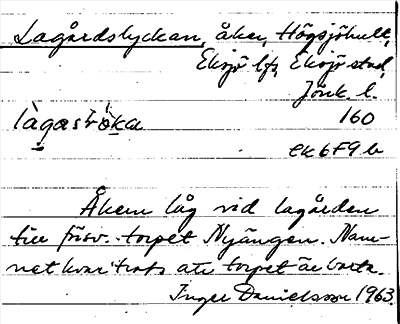 Lagårdslyckan, åker, Högsjöhult,
Eksjö lfs, Eksjö stad,
Jönk. l.
160
ek 6F9b
Åkern låg vid lagården
till försv. torpet Nyängen. Nam-
net kvar trots att torpet är borta.
Inger Danielsson 1963.